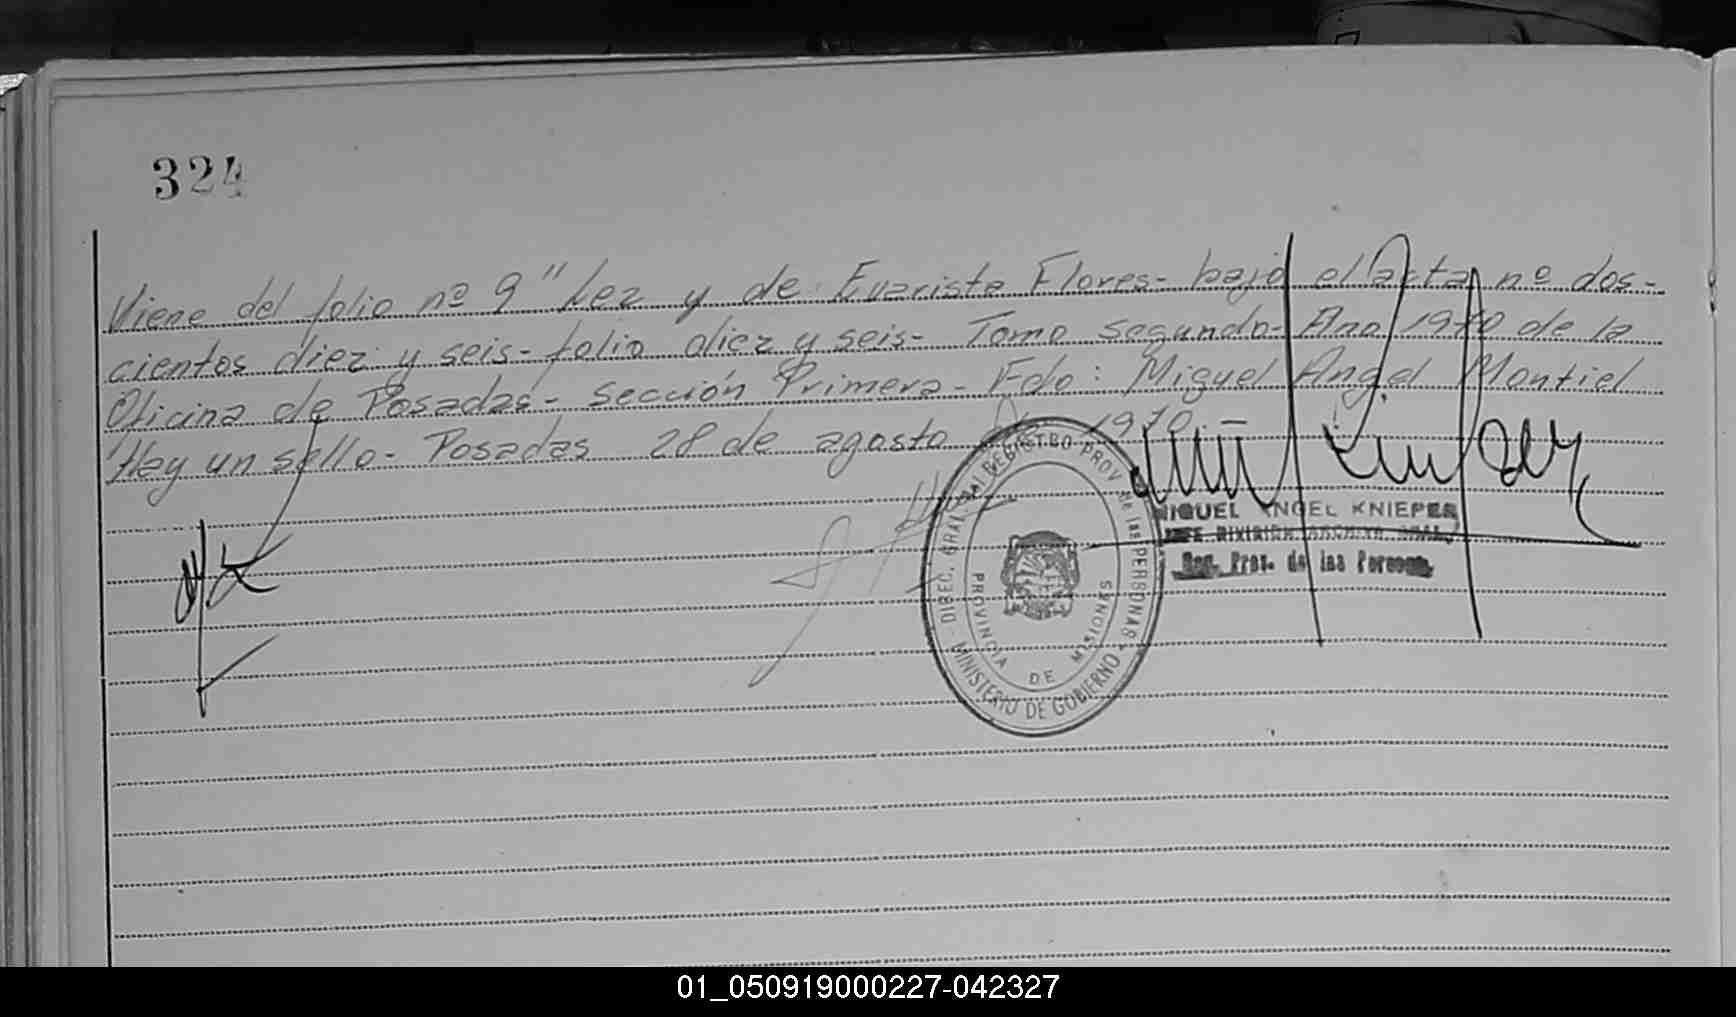 324
Viene del folio nº 9 " Lez y de Evarista Flores - bajo el acta nº dos-
cientos diez y seis - folio diez y seis - Tomo segundo - Año 1970 de la
Oficina de Posadas - sección Primera - Fdo: Miguel Angel Montiel
Hay un sello - Posadas 28 de agosto de 1970
DIREC. GRAL. REGISTRO PROV. de las PERSONAS
MINISTERIO DE GOBIERNO
PROVINCIA DE MISIONES
MIGUEL ANGEL KNIEPER
JEFE DIVISION ARCHIVO GRAL.
Reg. Prov. de las Personas
01_050919000227-042327